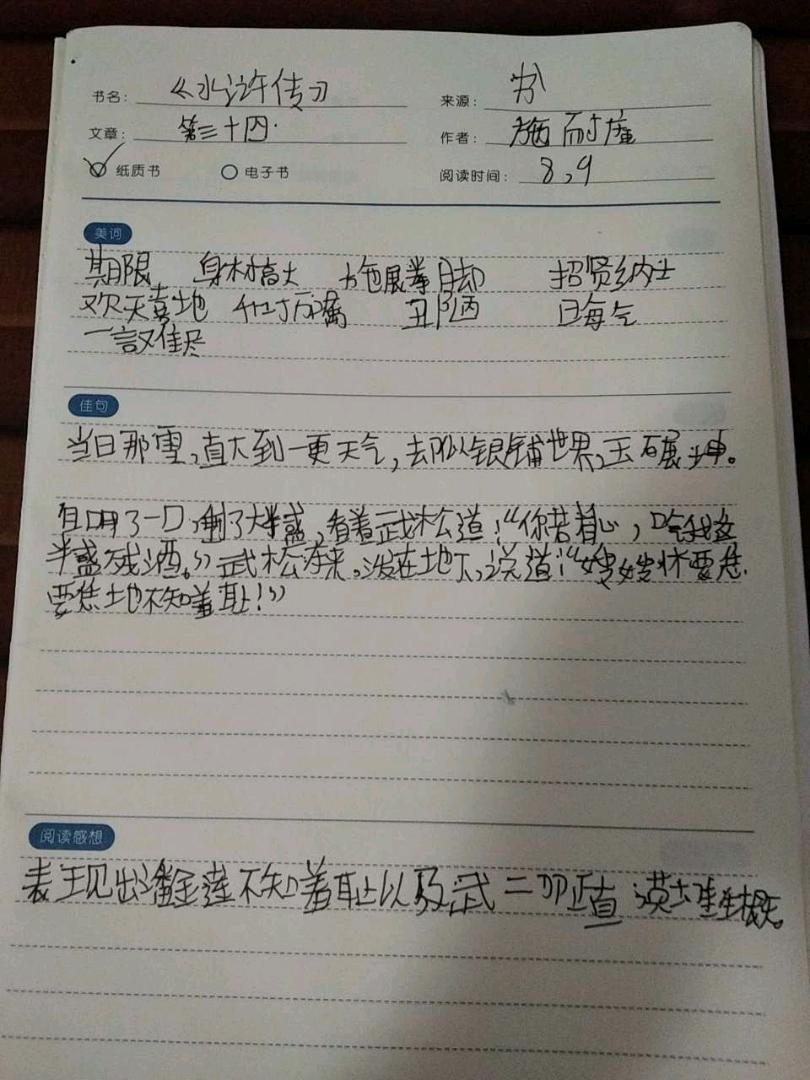 书名: 《水浒传》 来源:
文章: 第三十四. 作者: 施耐庵
纸质书 电子书 阅读时间: 8,9
美词
期限 身材高大 拖展拳脚 招贤纳士
欢天喜地 丑陋 晦气
一言难尽
佳句
当日那雪,直大到一更天气,却似银铺世界,玉碾乾坤。
自呷了一口,剩了大半盏,看着武松道:“你若有心,吃我这
半盏残酒。”武松夺来,泼在地下,说道:“嫂嫂休要恁
要恁地不知羞耻!”
阅读感想
表现出潘金莲不知羞耻以及武二郎正直 英雄气概。